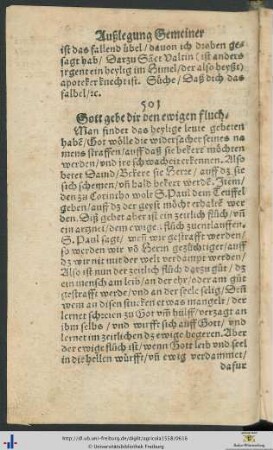 Außlegung Gemeiner
ist das fallend übel / dauon ich droben ge-
sagt hab / Darzu Sāct Valtin (ist anders
irgent ein heylig im Himel / der also heyßt)
apoteker knecht ist. Süche / Daß dich das
falbel / ꝛc.
503
Gott gebe dir den ewigen fluch.
Man findet das heylige leute gebeten
habē / Got wölle die widersacher seines na
mens straffen / auff daß sie bekert möchten
werden / vnd jre schwacheit erkennen. Also
betet Dauid / Bekere sie Herre / auff dz sie
sich schemen / vñ bald bekert werdē. Item /
den zu Corintho wolt S. Paul dem Teuffel
geben / auff dz der geyst möcht erhaltē wer
den. Diß gebet aber ist ein zeitlich flůch / vñ
ein artznei / dem ewigē flůch zuentlauffen.
S. Paul sagt / wen wir gestrafft werden /
so werden wir võ Herrn gezüchtiget / auff
dz wir nit mit der welt verdampt werden /
Also ist nun der zeitlich flůch darzu gůt / dz
ein mensch am leib / an der ehr / oder am gůt
gestrafft werde / vnd an der seele selig / Drũ
wem an disen stucken etwas mangelt / der
lernet schreien zu Got vm hülff / verzagt an
ihm selbs / vnd wurfft sich auff Gott / vnd
lernet im zeitlichen dz ewige begeren. Aber
der ewige flůch ist / wenn Gott leib vnd seel
in die hellen würfft / vñ ewig verdammet /
dafur
http://dl.ub.uni-freiburg.de/diglit/agricola1558/0616
© Universitätsbibliothek Freiburg
Baden-Württemberg